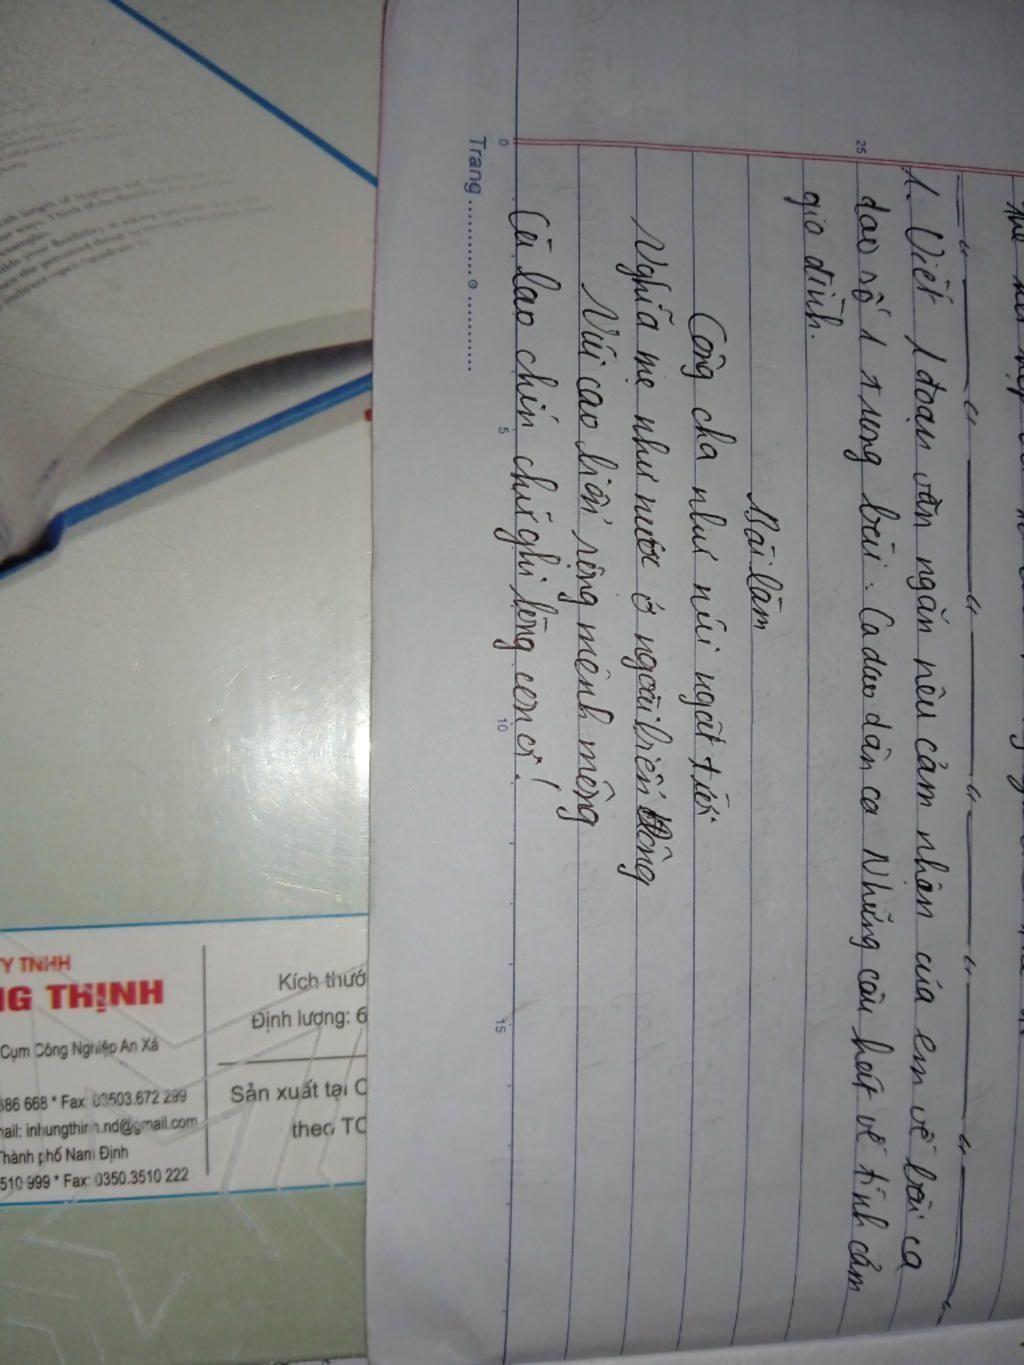 1. Viết 1 đoạn văn ngắn nêu cảm nhận của em về bài ca
dao số 1 trong bài: Ca dao dân ca Những câu hát về tình cảm
gia đình.
Bài làm
Công cha như núi ngất trời
Nghĩa mẹ như nước ở ngoài biển Đông
Núi cao biển rộng mênh mông
Cù lao chín chữ ghi lòng con ơi!
Trang
0
5
10
15
25
Y TNHH
NG THỊNH
Cụm Công Nghiệp An Xá
686 668 * Fax: 03503.672 299
mail: inhungthinh.nd@gmail.com
Thành phố Nam Định
510 999 * Fax: 0350.3510 222
Kích thướ
Định lượng: 6
Sản xuất tại C
theo TC